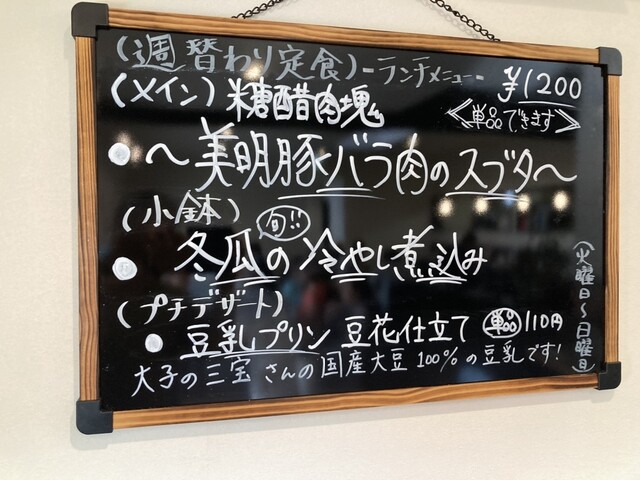 (週替わり定食)-ランチメニュー- ¥1200
(メイン) 糖醋肉塊 ≪単品できます≫
〜美明豚バラ肉のスブタ〜
(小鉢) 旬!!
冬瓜の冷やし煮込み
(プチデザート)
豆乳プリン 豆花仕立て 単品110円
大子の三宝さんの国産大豆100%の豆乳です!
(火曜日〜日曜日)